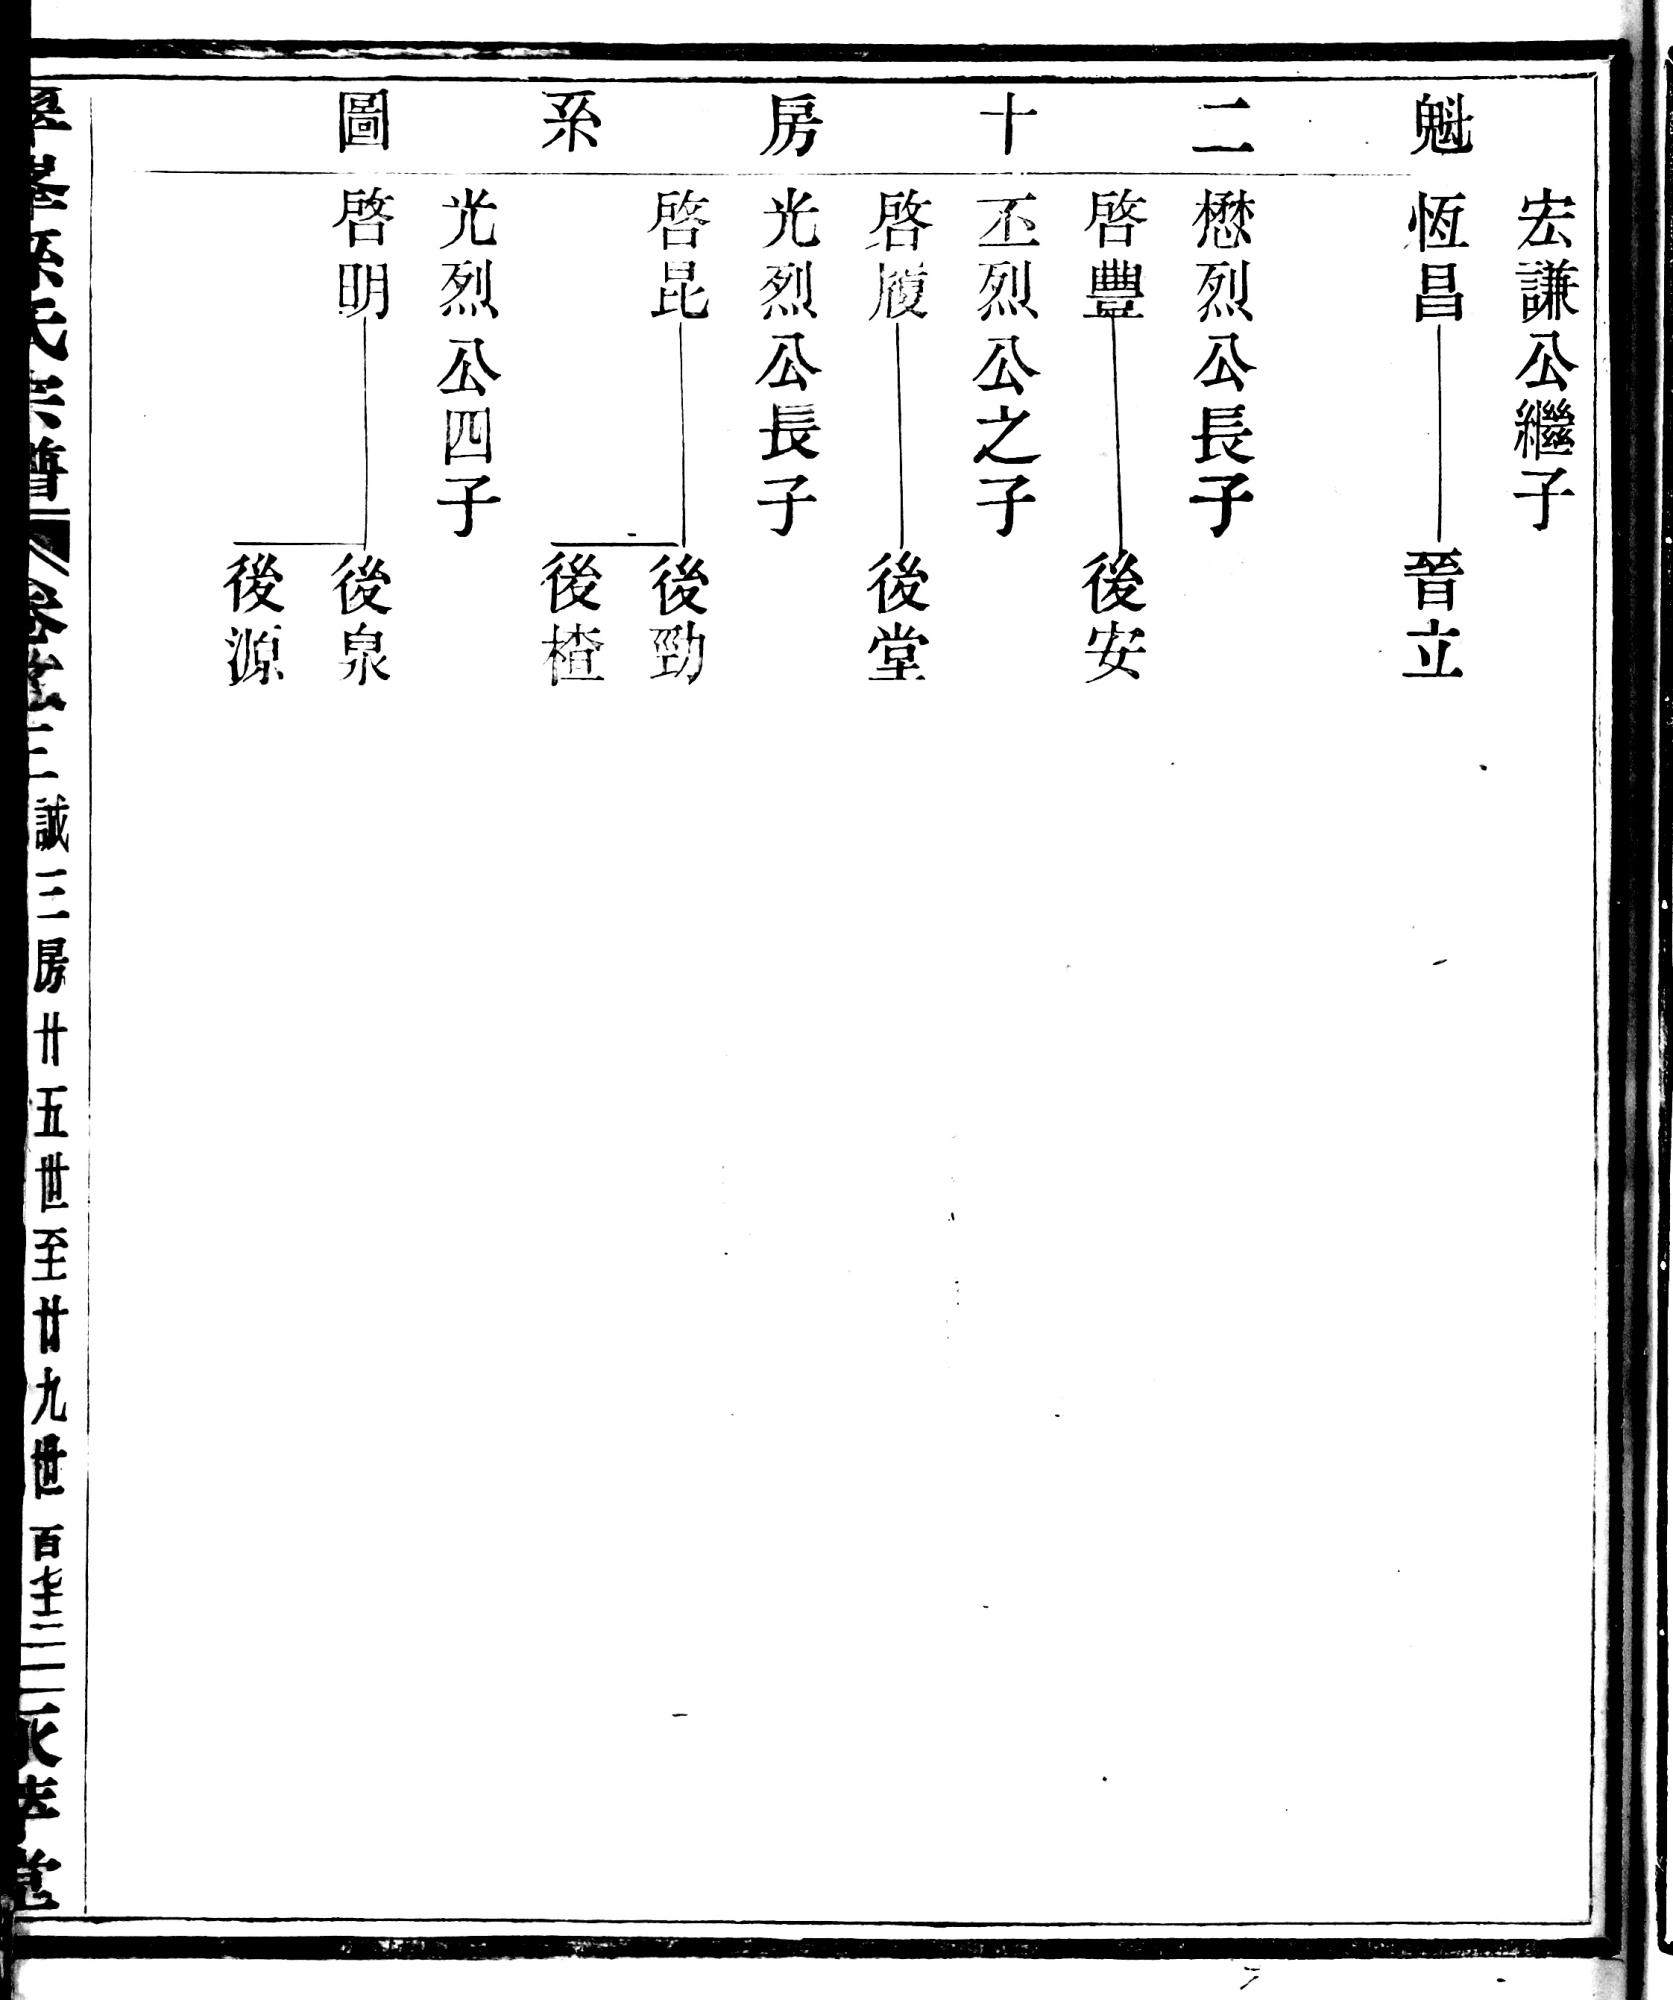 魁二十房系圖
宏謙公繼子
恆昌
晉立
懋烈公長子
啓豐
後安
丕烈公之子
啓履
後堂
光烈公長子
啓昆
後勁
後楂
光烈公四子
啓明
後泉
後源
孫氏宗譜
卷
三
誠三房廿五世至廿九世
百
堂